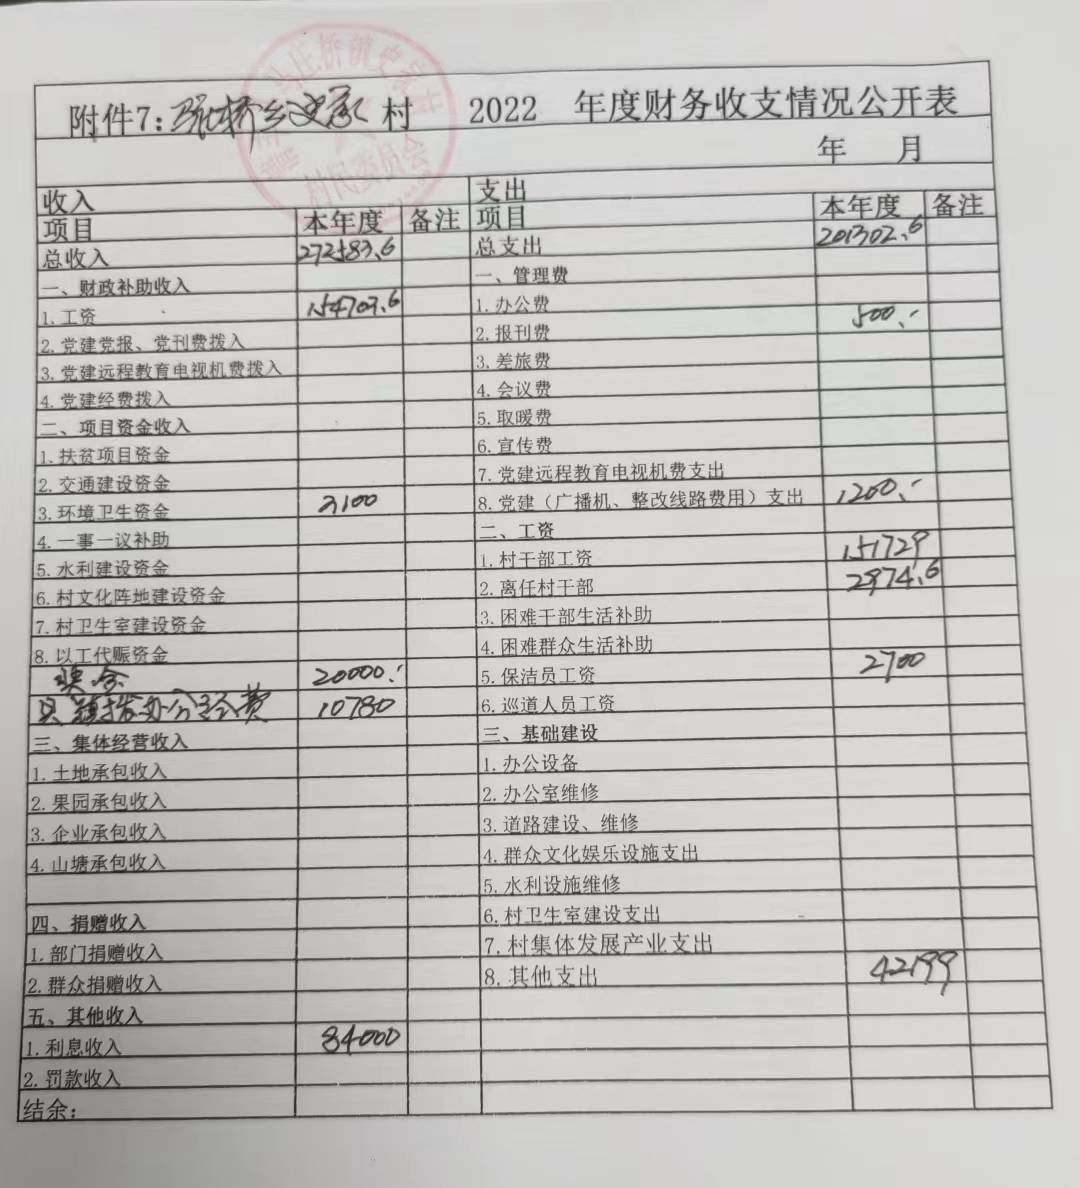 村民委员会
附件7: 村 2022 年度财务收支情况公开表
年 月
收入 支出
项目 本年度 备注 项目 本年度 备注
总收入 272583.6 总支出 201302.6
一、财政补助收入 一、管理费
1.工资 154703.6 1.办公费 500.-
2.党建党报、党刊费拨入 2.报刊费
3.党建远程教育电视机费拨入 3.差旅费
4.党建经费拨入 4.会议费
二、项目资金收入 5.取暖费
1.扶贫项目资金 6.宣传费
2.交通建设资金 7.党建远程教育电视机费支出
3.环境卫生资金 3100 8.党建（广播机、整改线路费用）支出 1200.-
4.一事一议补助 二、工资
5.水利建设资金 1.村干部工资 151729
6.村文化阵地建设资金 2.离任村干部 2974.6
7.村卫生室建设资金 3.困难干部生活补助
8.以工代赈资金 4.困难群众生活补助
奖金 20000.- 5.保洁员工资 2700
县镇拨办公经费 10780 6.巡道人员工资
三、集体经营收入 三、基础建设
1.土地承包收入 1.办公设备
2.果园承包收入 2.办公室维修
3.企业承包收入 3.道路建设、维修
4.山塘承包收入 4.群众文化娱乐设施支出
5.水利设施维修
四、捐赠收入 6.村卫生室建设支出
1.部门捐赠收入 7.村集体发展产业支出
2.群众捐赠收入 8.其他支出 42199
五、其他收入
1.利息收入 84000
2.罚款收入
结余: